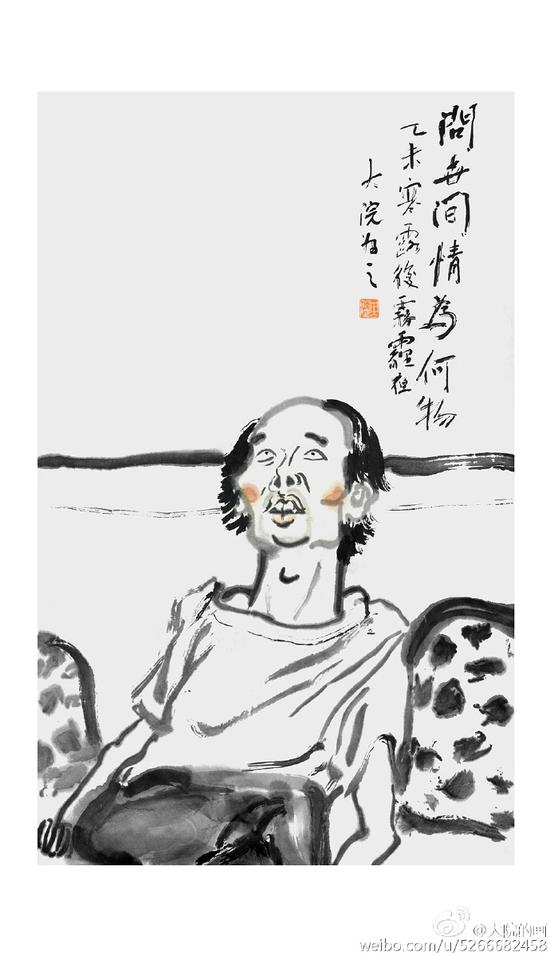 問世间情為何物
乙未寒露後霧霾夜
大浣为之
@大浣的画
weibo.com/u/5266682458